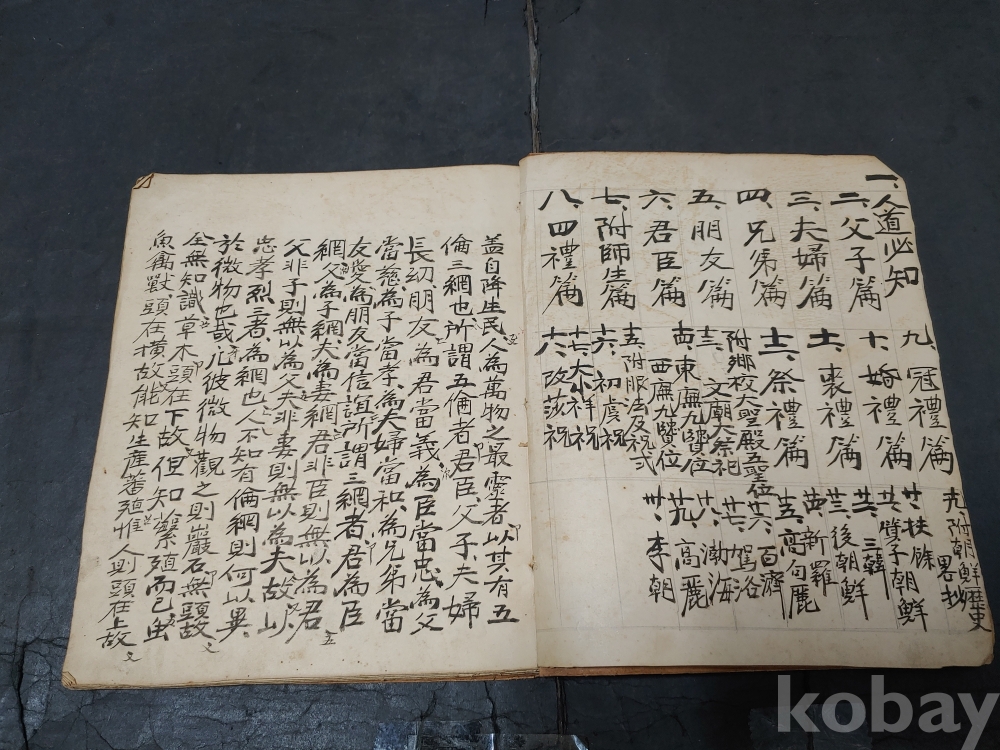 一、人道必知
二、父子篇
三、夫婦篇
四、兄弟篇
五、朋友篇
六、君臣篇
七、附師生篇
八、四禮篇
九、冠禮篇
十、婚禮篇
十一、喪禮篇
十二、祭禮篇
附鄉校大聖殿五聖位
十三、文廟大祭祀
十四、東廡九賢位
西廡九賢位
十五、附服法及祝式
十六、初虞祝
十七、大小祥祝
十八、改莎祝
十九、附朝鮮歷史
畧抄
廿、扶餘
廿一、箕子朝鮮
廿二、三韓
廿三、後朝鮮
廿四、新羅
廿五、高句麗
廿六、百濟
廿七、駕洛
廿八、渤海
廿九、高麗
卅、李朝
蓋自降生民人為萬物之最靈者以其有五
倫三綱也所謂五倫者君臣父子夫婦
長幼朋友為君當義為臣當忠為父
當慈為子當孝為夫婦當和為兄弟當
友愛為朋友當信誼所謂三綱者君為臣
綱父為子綱夫為妻綱君非臣則無以為君
父非子則無以為父夫非妻則無以為夫故以
忠孝烈三者為綱也人不知有倫綱則何以異
於微物也哉凡彼微物觀之則巖石無頭故
全無知識草木頭在下故但知繁殖而已虫
魚禽獸頭在橫故能知生產蕃殖惟人則頭在上故
kobay